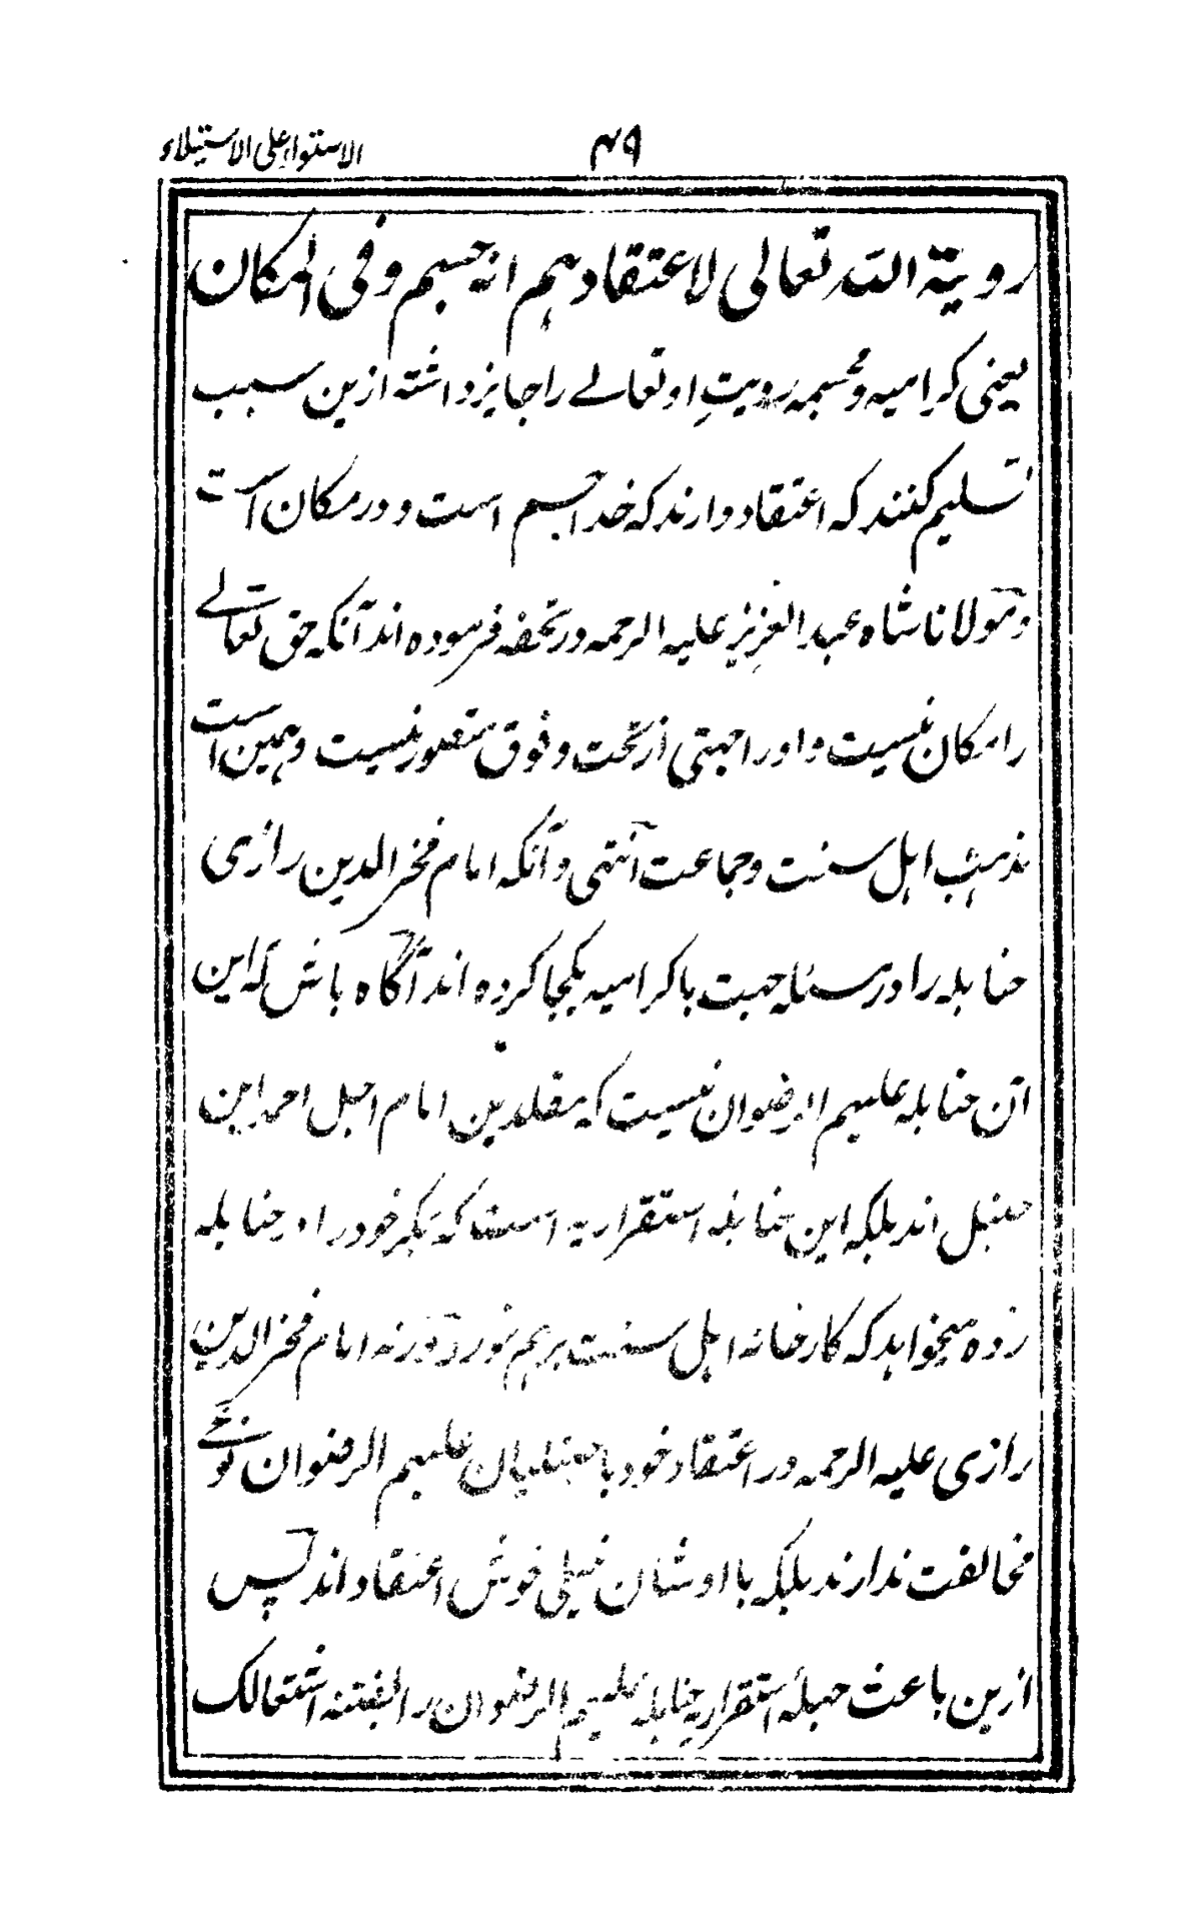 ۴۹
الاستواء علی الاستیلاء
رویة الله تعالی لاعتقادهم انه جسم وفی المکان
یعنی کرامیه و مجسمه رویتِ او تعالے را جایز داشته ازین سبب
تسلیم کنند که اعتقاد دارند که خدا جسم است و در مکان است
و مولانا شاه عبد العزیز علیه الرحمه در تحفه فرموده اند آنکه حق تعالے
را مکان نیست و او را جهتی از تحت و فوق متصور نیست و همین است
مذهب اهل سنت و جماعت انتهی و آنکه امام فخر الدین رازی
حنابله را در مسئله جهت با کرامیه یکجا کرده اند آگاه باش که این
آن حنابله علیهم الرضوان نیست که مقلدین امام اجل احمد ابن
حنبل اند بلکه این حنابله استقراریه است که بمکر خود را در حنابله
زده میخواهد که کارخانه اهل سنت برهم خورد ورنه امام فخر الدین
رازی علیه الرحمه در اعتقاد خود با حنبلیان علیهم الرضوان نوعے
مخالفت ندارند بلکه با اوشان خیلی خوش اعتقاد اند پس
ازین باعث حیلهٔ استقراریه حنابله علیهم الرضوان را بفتنه اشتعالک